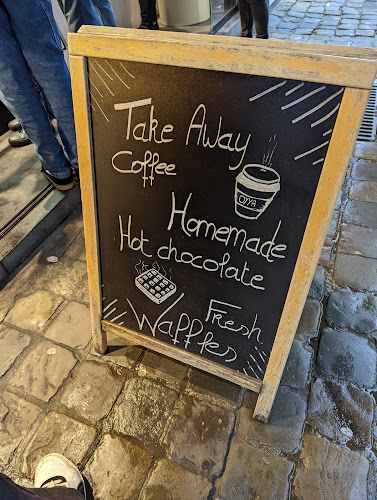 Take Away
Coffee
OYYA
Homemade
Hot chocolate
Fresh
Waffles